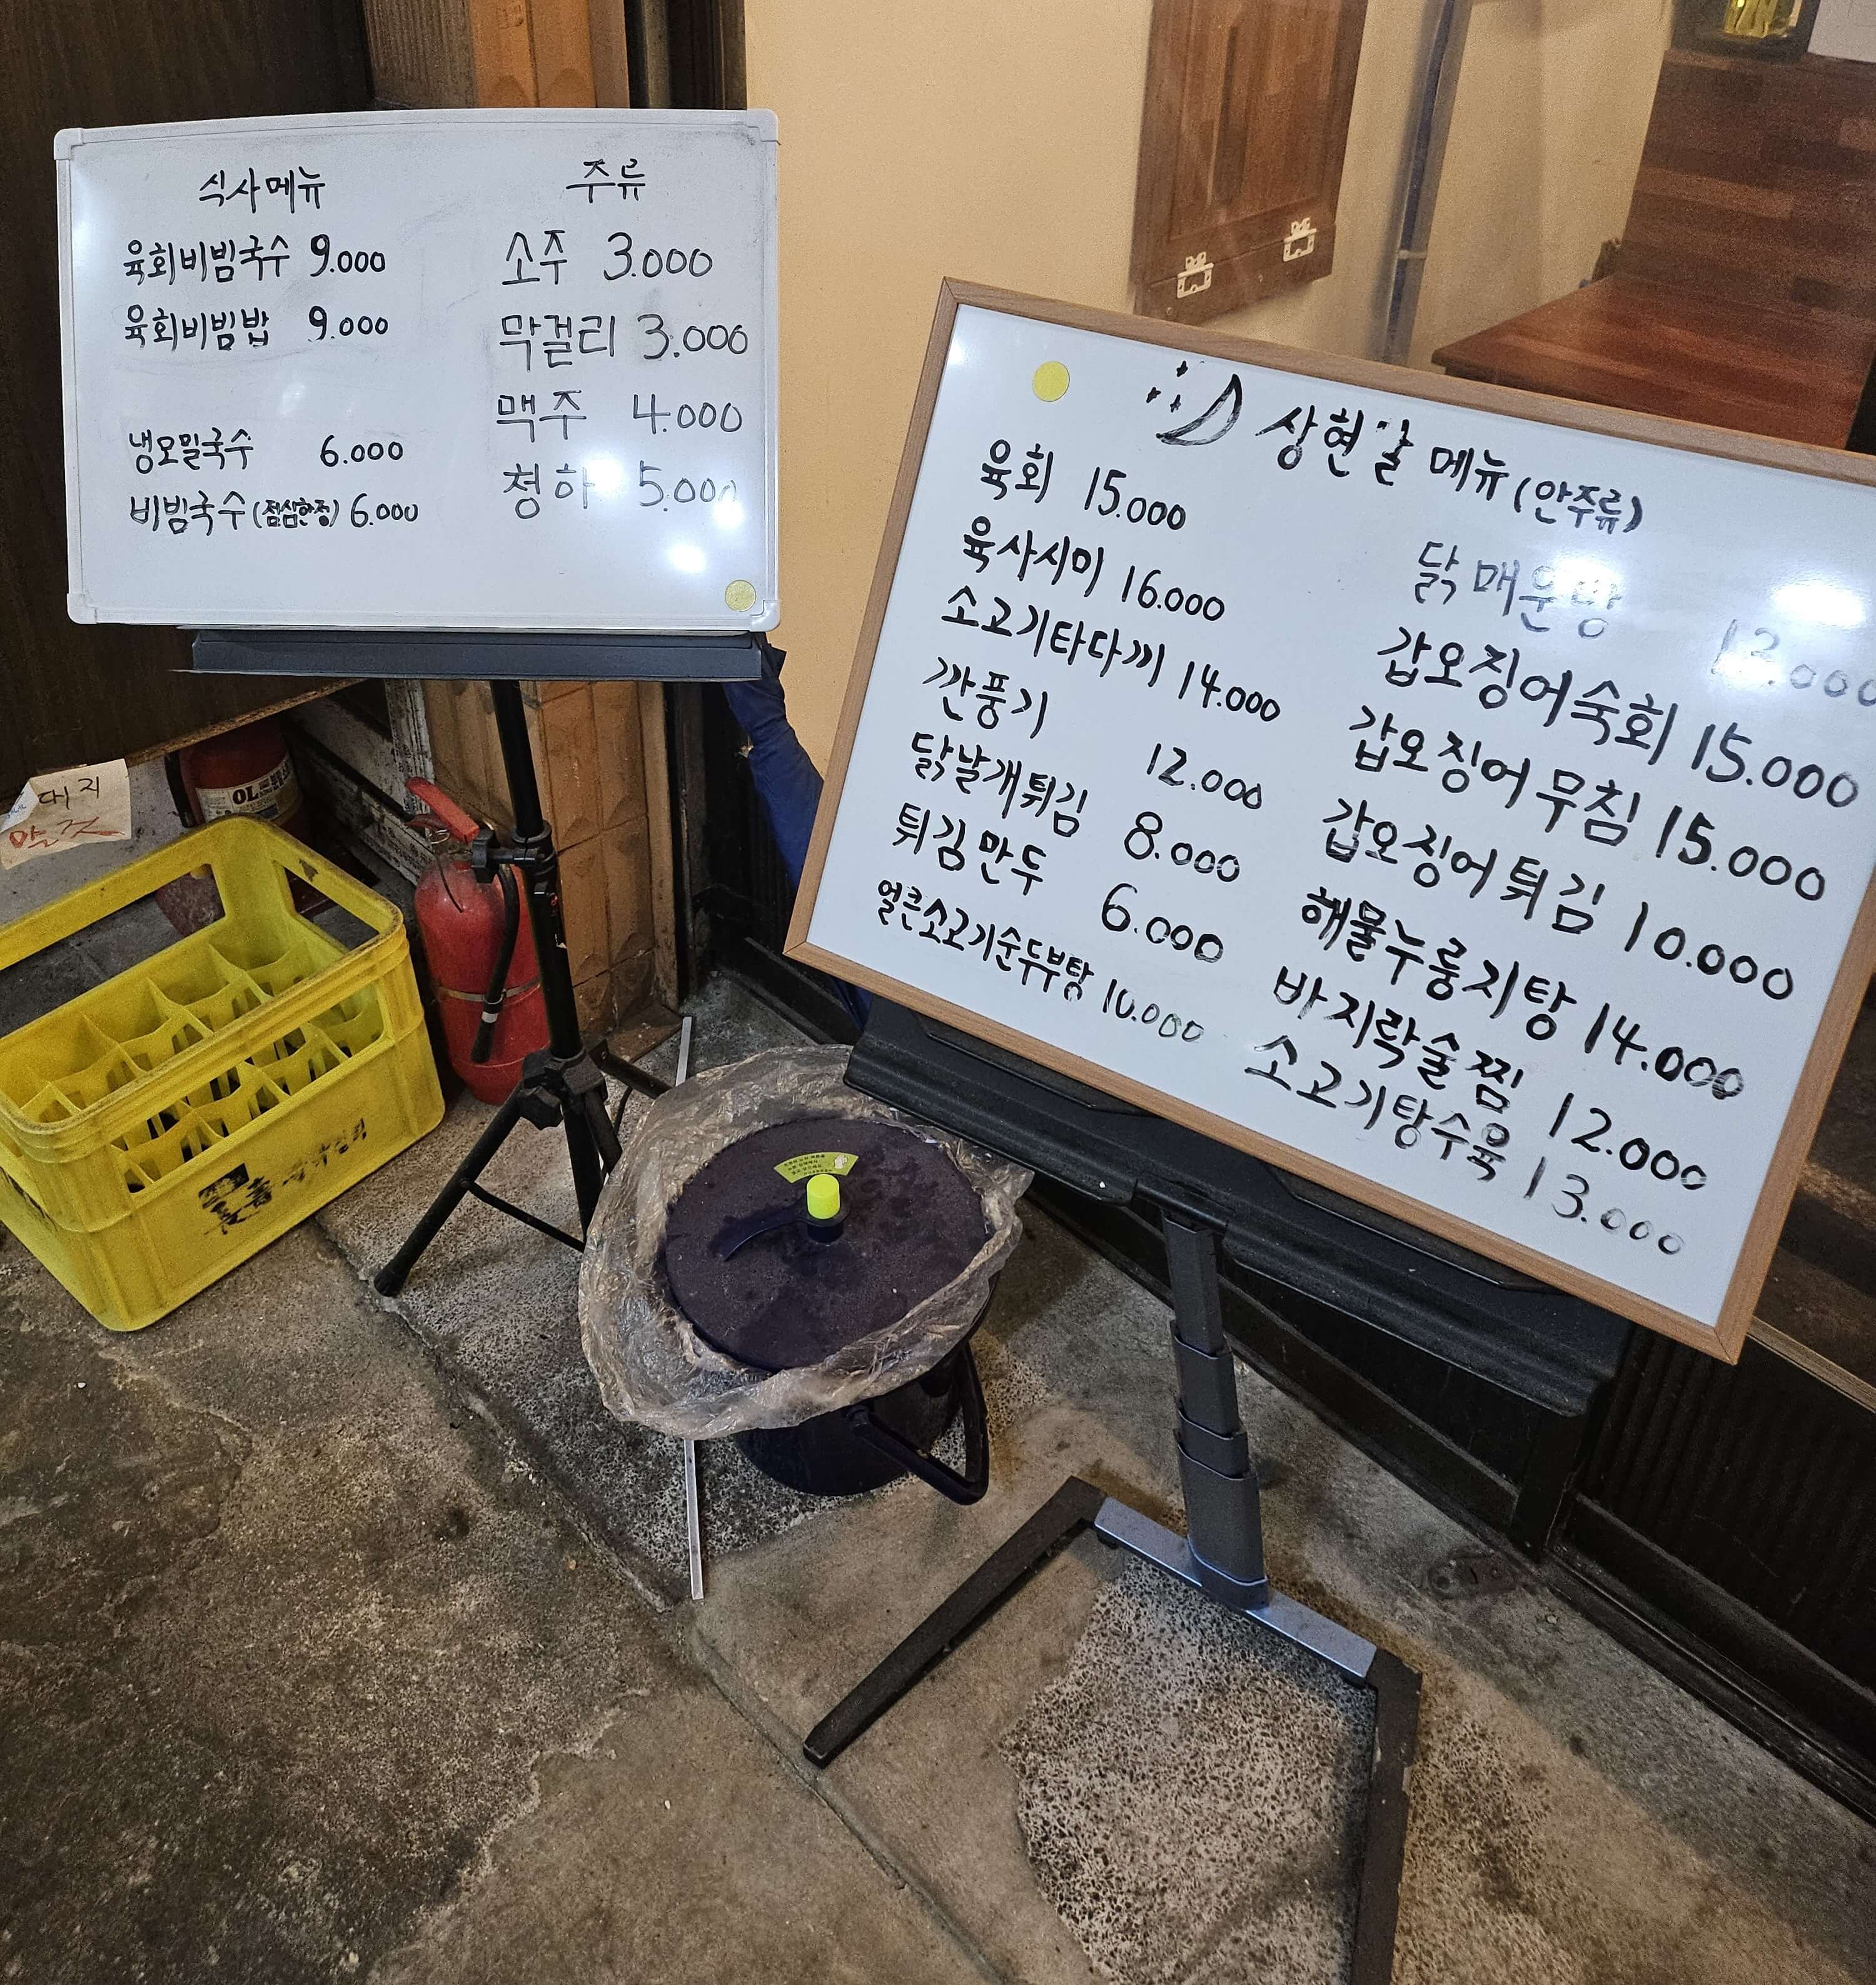 식사메뉴
육회비빔국수 9.000
육회비빔밥 9.000
냉모밀국수 6.000
비빔국수(점심한정) 6.000
주류
소주 3.000
막걸리 3.000
맥주 4.000
청하 5.000
상현달 메뉴(안주류)
육회 15.000
육사시미 16.000
소고기타다끼 14.000
깐풍기 12.000
닭날개튀김 8.000
튀김만두 6.000
얼큰소고기순두부탕 10.000
닭매운탕 13.000
갑오징어숙회 15.000
갑오징어무침 15.000
갑오징어튀김 10.000
해물누룽지탕 14.000
바지락술찜 12.000
소고기탕수육 13.000
대지
말것